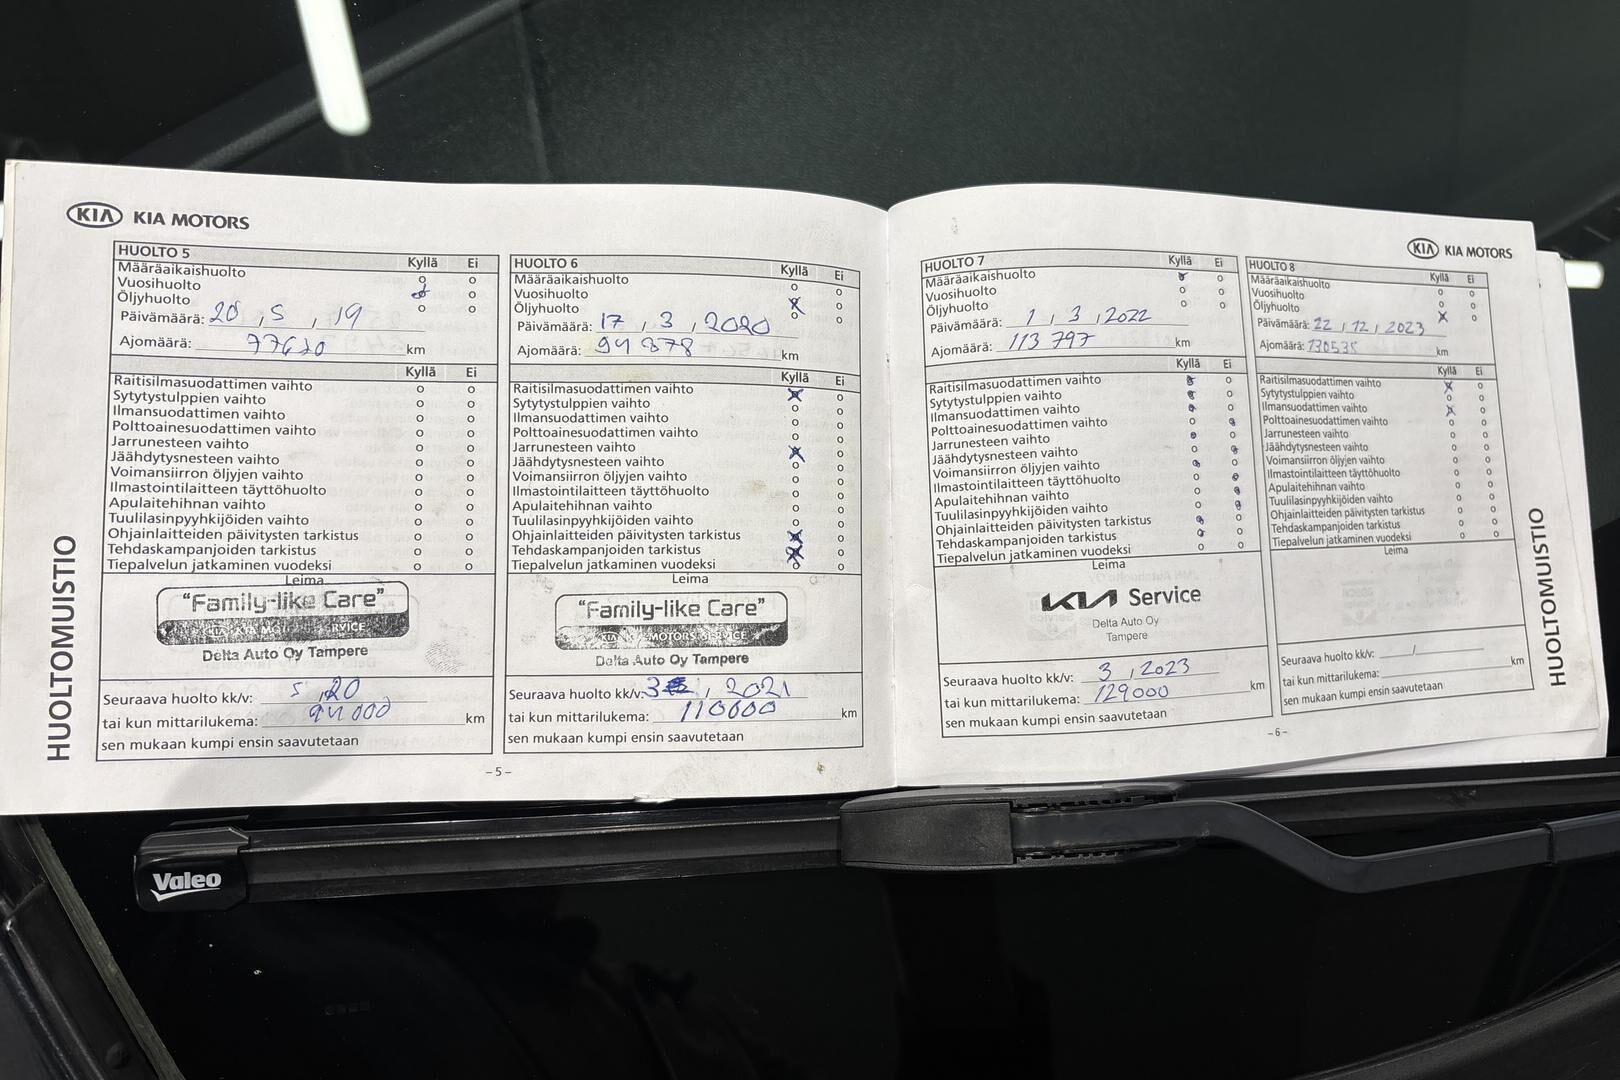 KIA KIA MOTORS
HUOLTOMUISTIO
HUOLTO 5
Kyllä Ei
Määräaikaishuolto o o
Vuosihuolto o
Öljyhuolto o o
Päivämäärä: 20 , 5 , 19
Ajomäärä: 77620 km
Kyllä Ei
Raitisilmasuodattimen vaihto o o
Sytytystulppien vaihto o o
Ilmansuodattimen vaihto o o
Polttoainesuodattimen vaihto o o
Jarrunesteen vaihto o o
Jäähdytysnesteen vaihto o o
Voimansiirron öljyjen vaihto o o
Ilmastointilaitteen täyttöhuolto o o
Apulaitehihnan vaihto o o
Tuulilasinpyyhkijöiden vaihto o o
Ohjainlaitteiden päivitysten tarkistus o o
Tehdaskampanjoiden tarkistus o o
Tiepalvelun jatkaminen vuodeksi o o
Leima
"Family-like Care"
Delta Auto Oy Tampere
Seuraava huolto kk/v: 5 , 20
tai kun mittarilukema: 94 000 km
sen mukaan kumpi ensin saavutetaan
HUOLTO 6
Kyllä Ei
Määräaikaishuolto o o
Vuosihuolto x o
Öljyhuolto o o
Päivämäärä: 17 , 3 , 2020
Ajomäärä: 94 378 km
Kyllä Ei
Raitisilmasuodattimen vaihto x o
Sytytystulppien vaihto o o
Ilmansuodattimen vaihto o o
Polttoainesuodattimen vaihto o o
Jarrunesteen vaihto x o
Jäähdytysnesteen vaihto o o
Voimansiirron öljyjen vaihto o o
Ilmastointilaitteen täyttöhuolto o o
Apulaitehihnan vaihto o o
Tuulilasinpyyhkijöiden vaihto o o
Ohjainlaitteiden päivitysten tarkistus x o
Tehdaskampanjoiden tarkistus x o
Tiepalvelun jatkaminen vuodeksi o o
Leima
"Family-like Care"
KIA MOTORS SERVICE
Delta Auto Oy Tampere
Seuraava huolto kk/v: 3 , 2021
tai kun mittarilukema: 110000 km
sen mukaan kumpi ensin saavutetaan
- 5 -
KIA KIA MOTORS
HUOLTOMUISTIO
HUOLTO 7
Kyllä Ei
Määräaikaishuolto o
Vuosihuolto o o
Öljyhuolto o o
Päivämäärä: 1 , 3 , 2022
Ajomäärä: 113 797 km
Kyllä Ei
Raitisilmasuodattimen vaihto
Sytytystulppien vaihto
Ilmansuodattimen vaihto
Polttoainesuodattimen vaihto
Jarrunesteen vaihto
Jäähdytysnesteen vaihto
Voimansiirron öljyjen vaihto
Ilmastointilaitteen täyttöhuolto
Apulaitehihnan vaihto
Tuulilasinpyyhkijöiden vaihto
Ohjainlaitteiden päivitysten tarkistus
Tehdaskampanjoiden tarkistus
Tiepalvelun jatkaminen vuodeksi o o
Leima
KIA Service
Delta Auto Oy
Tampere
Seuraava huolto kk/v: 3 , 2023
tai kun mittarilukema: 129000 km
sen mukaan kumpi ensin saavutetaan
HUOLTO 8
Kyllä Ei
Määräaikaishuolto o o
Vuosihuolto o o
Öljyhuolto x o
Päivämäärä: 22 , 12 , 2023
Ajomäärä: 130535 km
Kyllä Ei
Raitisilmasuodattimen vaihto x o
Sytytystulppien vaihto o o
Ilmansuodattimen vaihto x o
Polttoainesuodattimen vaihto o o
Jarrunesteen vaihto o o
Jäähdytysnesteen vaihto o o
Voimansiirron öljyjen vaihto o o
Ilmastointilaitteen täyttöhuolto o o
Apulaitehihnan vaihto o o
Tuulilasinpyyhkijöiden vaihto o o
Ohjainlaitteiden päivitysten tarkistus o o
Tehdaskampanjoiden tarkistus o o
Tiepalvelun jatkaminen vuodeksi o o
Leima
Seuraava huolto kk/v: /
tai kun mittarilukema: km
sen mukaan kumpi ensin saavutetaan
- 6 -
Valeo